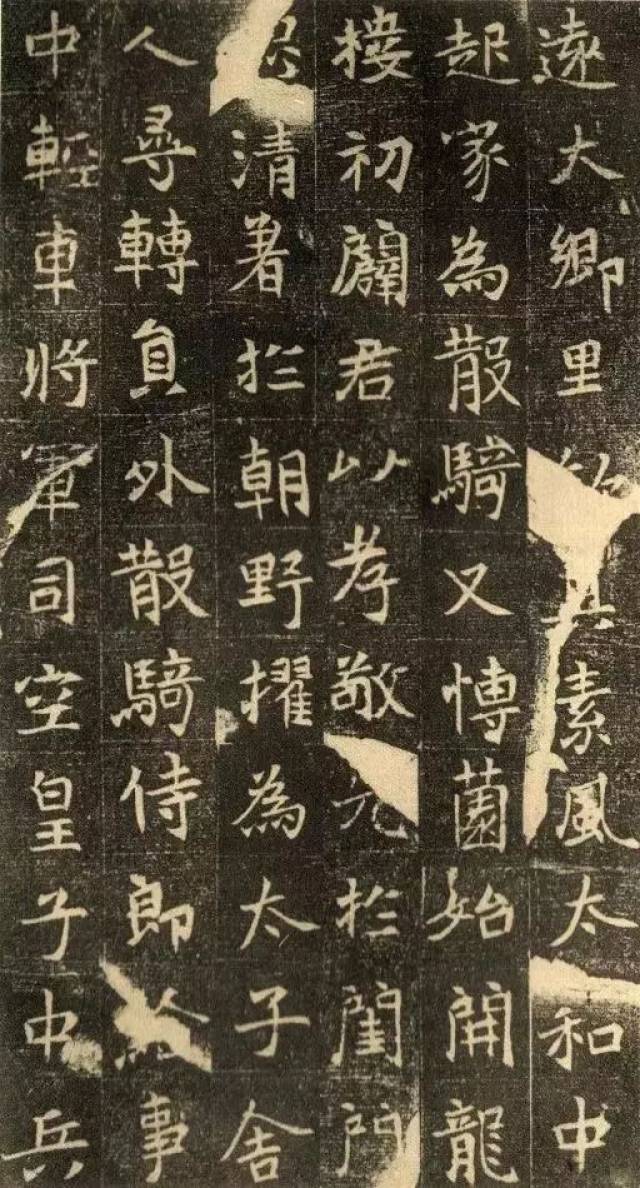 遠大鄉里素風太和中
起家為散騎又愽薗始開龍
樓初闢君以孝敬光扵閨門
清著扵朝野擢為太子舍
人尋轉負外散騎侍郎給事
中輕車將軍司空皇子中兵